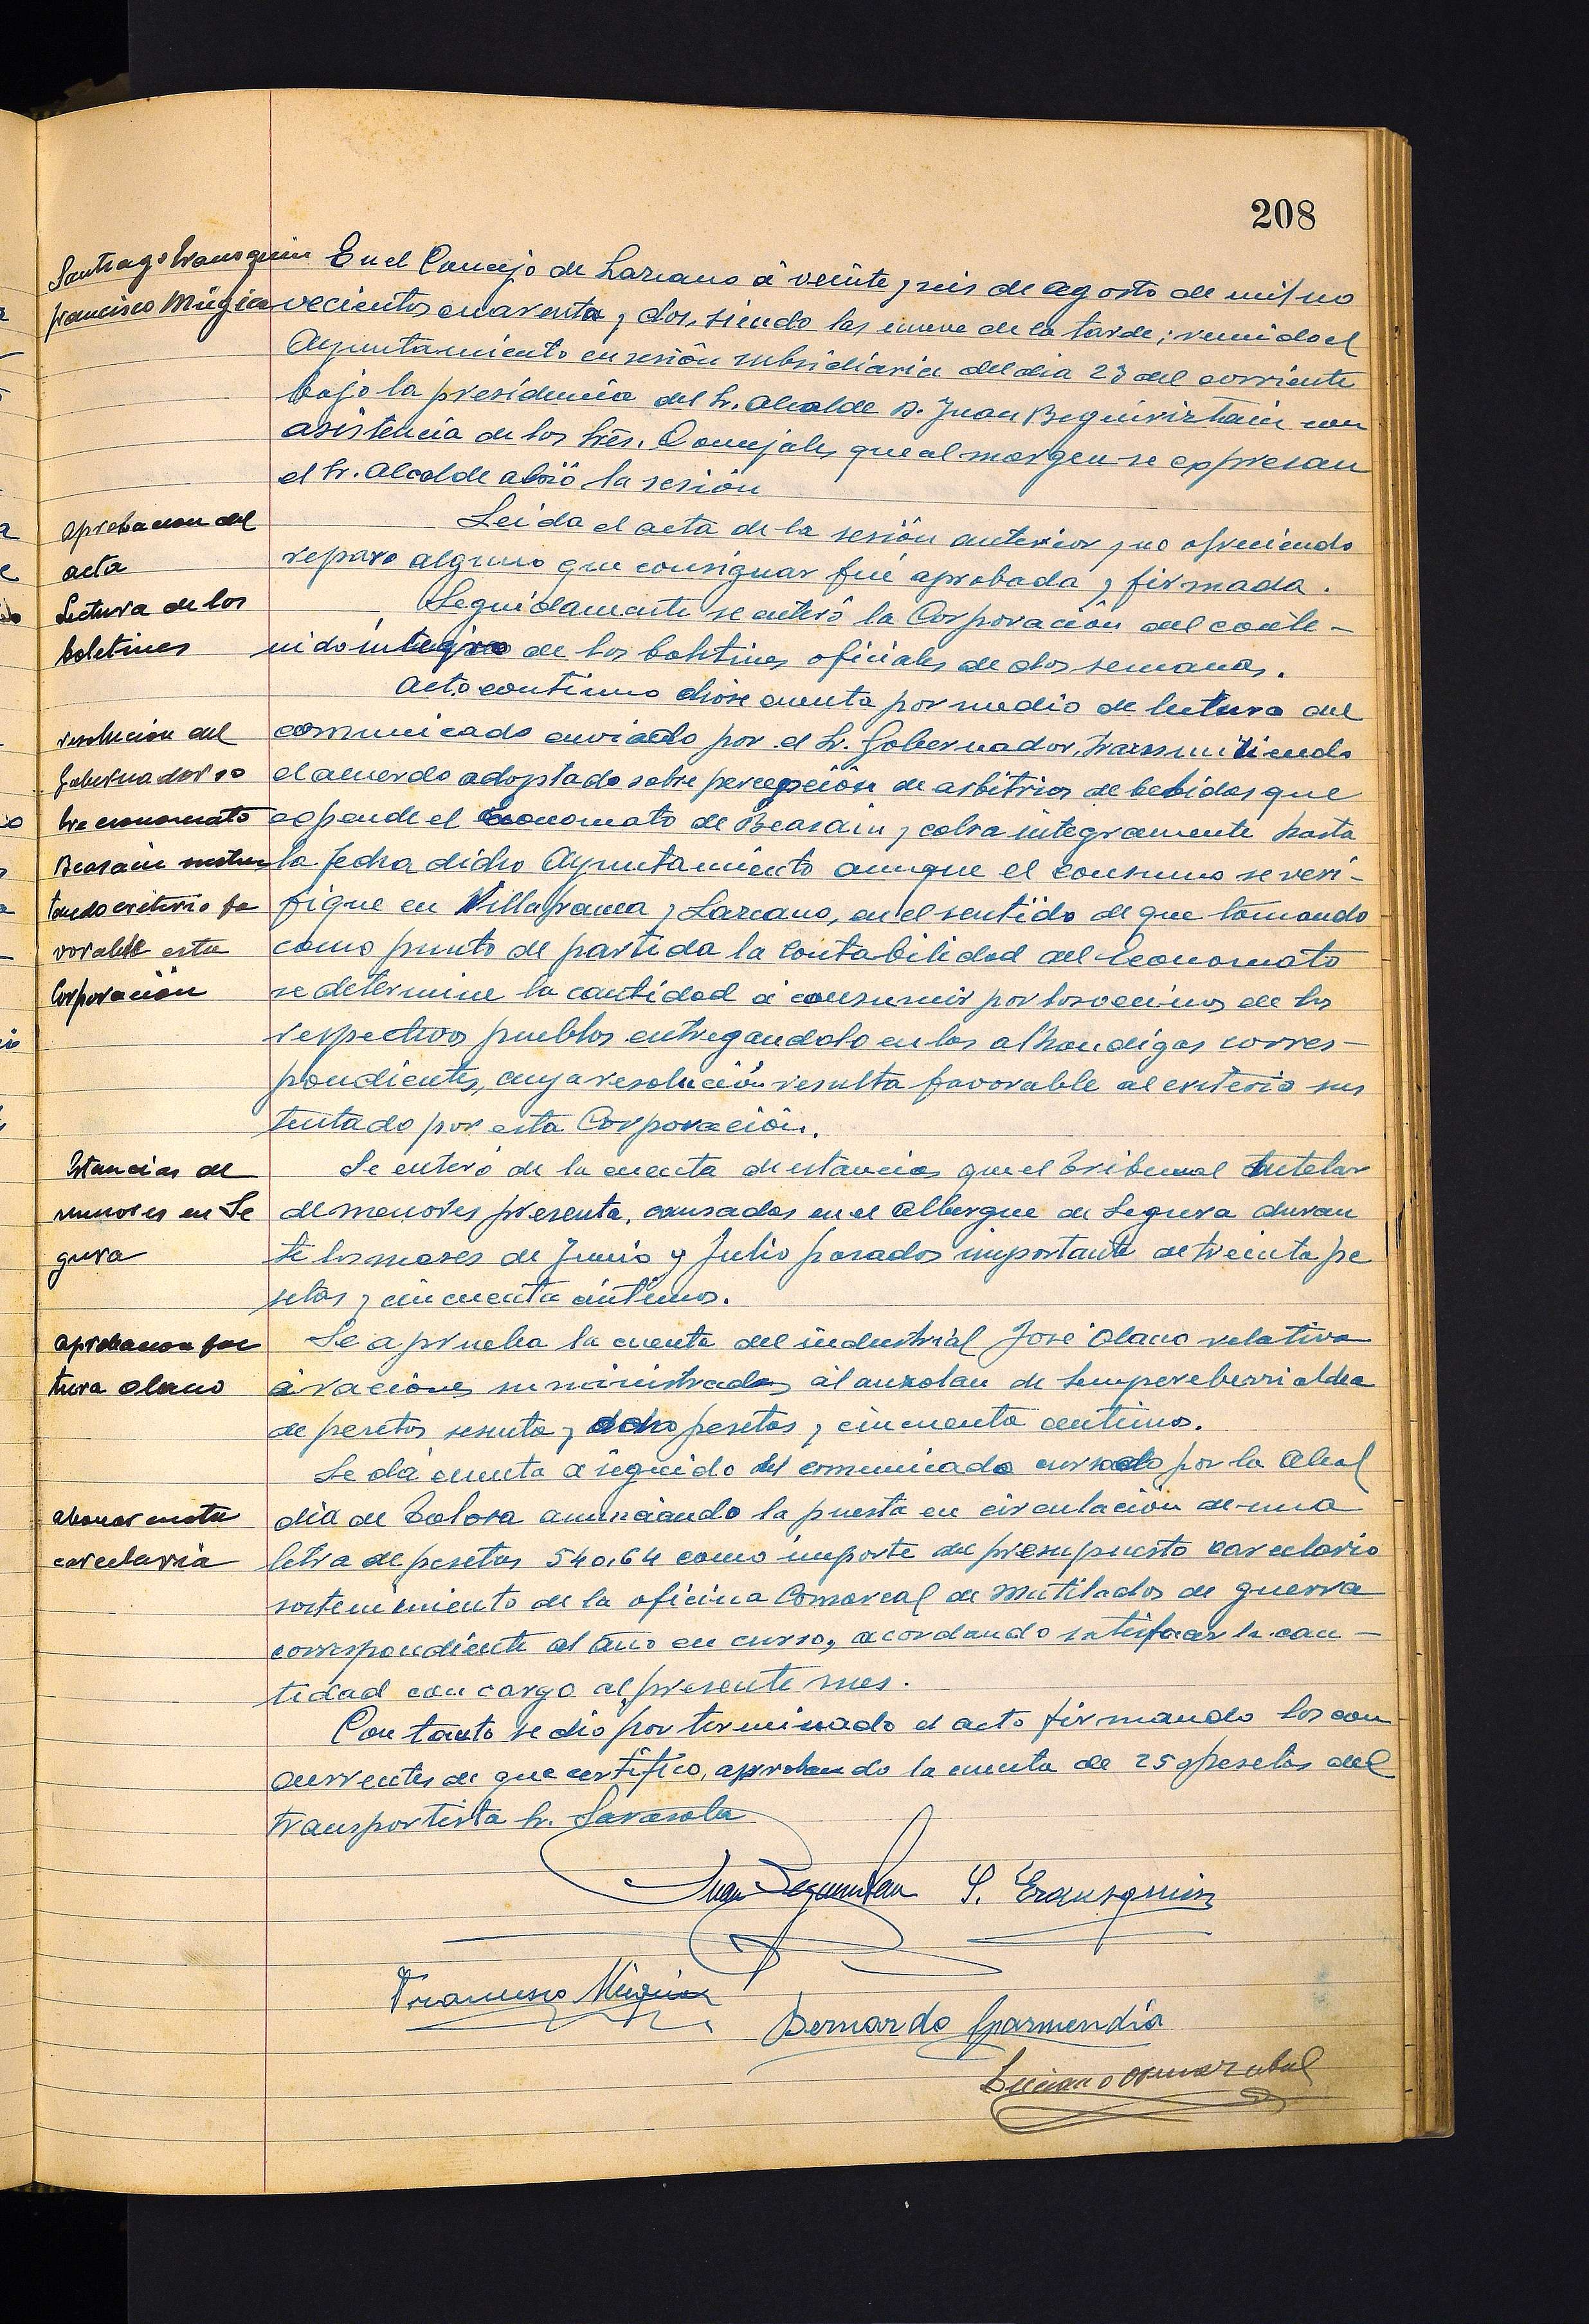 208
Santiago Irausquin
Francisco Múgica
En el Concejo de Lazcano á veinte y seis de agosto de mil no
vecientos cuarenta y dos, siendo las nueve de la tarde; reunido el
Ayuntamiento en sesión subsidiaria del dia 23 del corriente
bajo la presidencia del Sr. Alcalde D. Juan Beguiriztain con
asistencia de los Sres. Concejales que al margen se expresan
el Sr. Alcalde abrió la sesión
Aprobacion del
acta
Leida el acta de la sesión anterior y no ofreciendo
reparo alguno que consignar fué aprobada y firmada.
Lectura de los
boletines
Seguidamente se enteró la Corporación del conte-
nido integro de los boletines oficiales de dos semanas.
Acto continuo dióse cuenta por medio de lectura del
resolucion del
Gobernador so
bre economato
Beasain susten
tando criterio fa
vorable esta
Corporación
comunicado enviado por el Sr. Gobernador, trasmitiendo
el acuerdo adoptado sobre percepción de arbitrios de bebidas que
expende el Economato de Beasain y cobra integramente hasta
la fecha dicho Ayuntamiento aunque el consumo se veri-
fique en Villafranca y Lazcano, en el sentido de que tomando
como punto de partida la contabilidad del Economato
se determine la cantidad á consumir por los vecinos de los
respectivos pueblos entregandolo en las alhondigas corres-
pondientes, cuya resolución resulta favorable al criterio sus
tentado por esta Corporación.
Estancias de
menores en Se
gura
Se enteró de la cuenta de estancias que el Tribunal tutelar
de menores presenta, causadas en el Albergue de Segura duran
te los meses de Junio y Julio pasados importante de treinta pe
setas y cincuenta céntimos.
aprobacion fac
tura olano
Se aprueba la cuenta del industrial José Olano relativa
á raciones suministradas al auzolan de Sempereberri aldea
de pesetas sesenta y ocho pesetas y cincuenta centimos.
Se dá cuenta á seguido del comunicado cursado por la Alcal
abonar cuota
carcelaria
dia de Tolosa anunciando la puesta en circulación de una
letra de pesetas 540,64 como importe del presupuesto carcelario
sostenimiento de la oficina Comarcal de Mutilados de guerra
correspondiente al año en curso, acordando satisfacer la can-
tidad con cargo al presente mes.
Con tanto se dio por terminado el acto firmando los con
currentes de que certifico, aprobando la cuenta de 250 pesetas del
transportista Sr. Sarasola
Juan Beguiristain S. Erausquin
Francisco Múgica
Bernardo Garmendia
Luciano Ormazabal